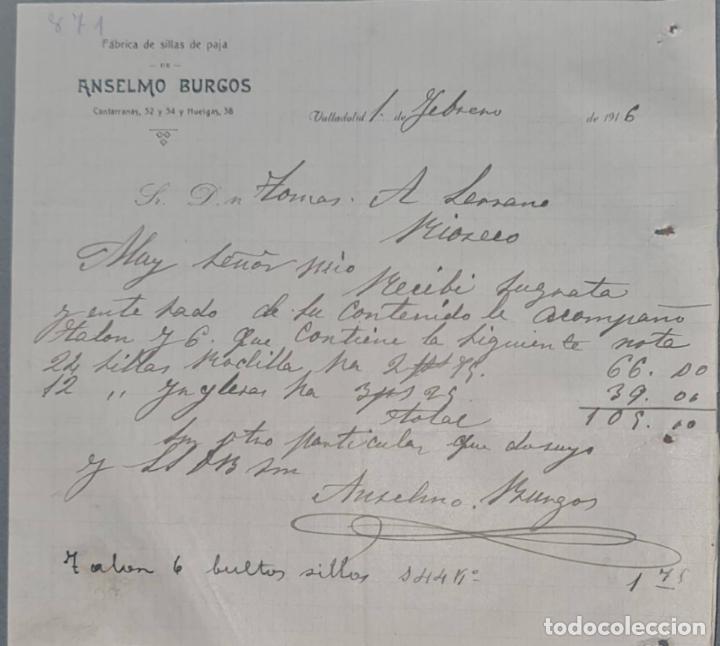 871
Fábrica de sillas de paja
DE
ANSELMO BURGOS
Cantarranas, 32 y 34 y Huelgas, 38
Valladolid 1. de Febrero de 1916
Sr. D.n Tomas. A Serrano
Rioseco
Muy Señor mio
Recibi su grata
y enterado de su contenido le acompaño
talon y 6. que contiene la siguiente nota
24 sillas Rodilla, ha 2 pts 75. 66.00
12 " Ynglesas ha 3 pts 25. 39.00
total 105.00
sin otro particular que de suyo
y
Anselmo. Burgos
Talon 6 bultos sillas K.o 1 75
todocoleccion.net